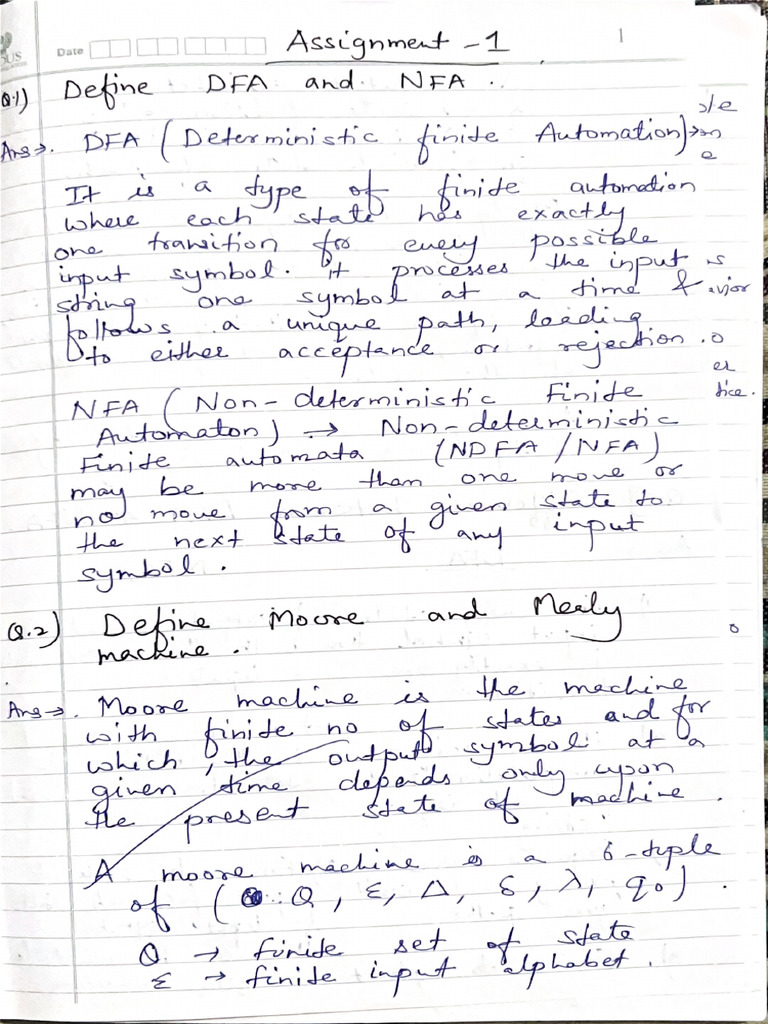 Date
Assignment - 1
1
Q.1) Define DFA and NFA.
Ans →. DFA (Deterministic finite Automation) →
It is a type of finite automation
where each state has exactly
one transition for every possible
input symbol. it processes the input
string one symbol at a time &
follows a unique path, leading
to either acceptance or rejection.
NFA (Non-deterministic Finite
Automaton) → Non-deterministic
Finite automata (NDFA / NFA)
may be more than one move or
no move from a given state to
the next state of any input
symbol.
Q.2) Define Moore and Mealy
machine.
Ans →. Moore machine is the machine
with finite no of states and for
which, the output symbol at a
given time depends only upon
the present state of machine.
A moore machine is a 6-tuple
of ( Q, ε, Δ, δ, λ, q0).
Q → finite set of state
ε → finite input alphabet.